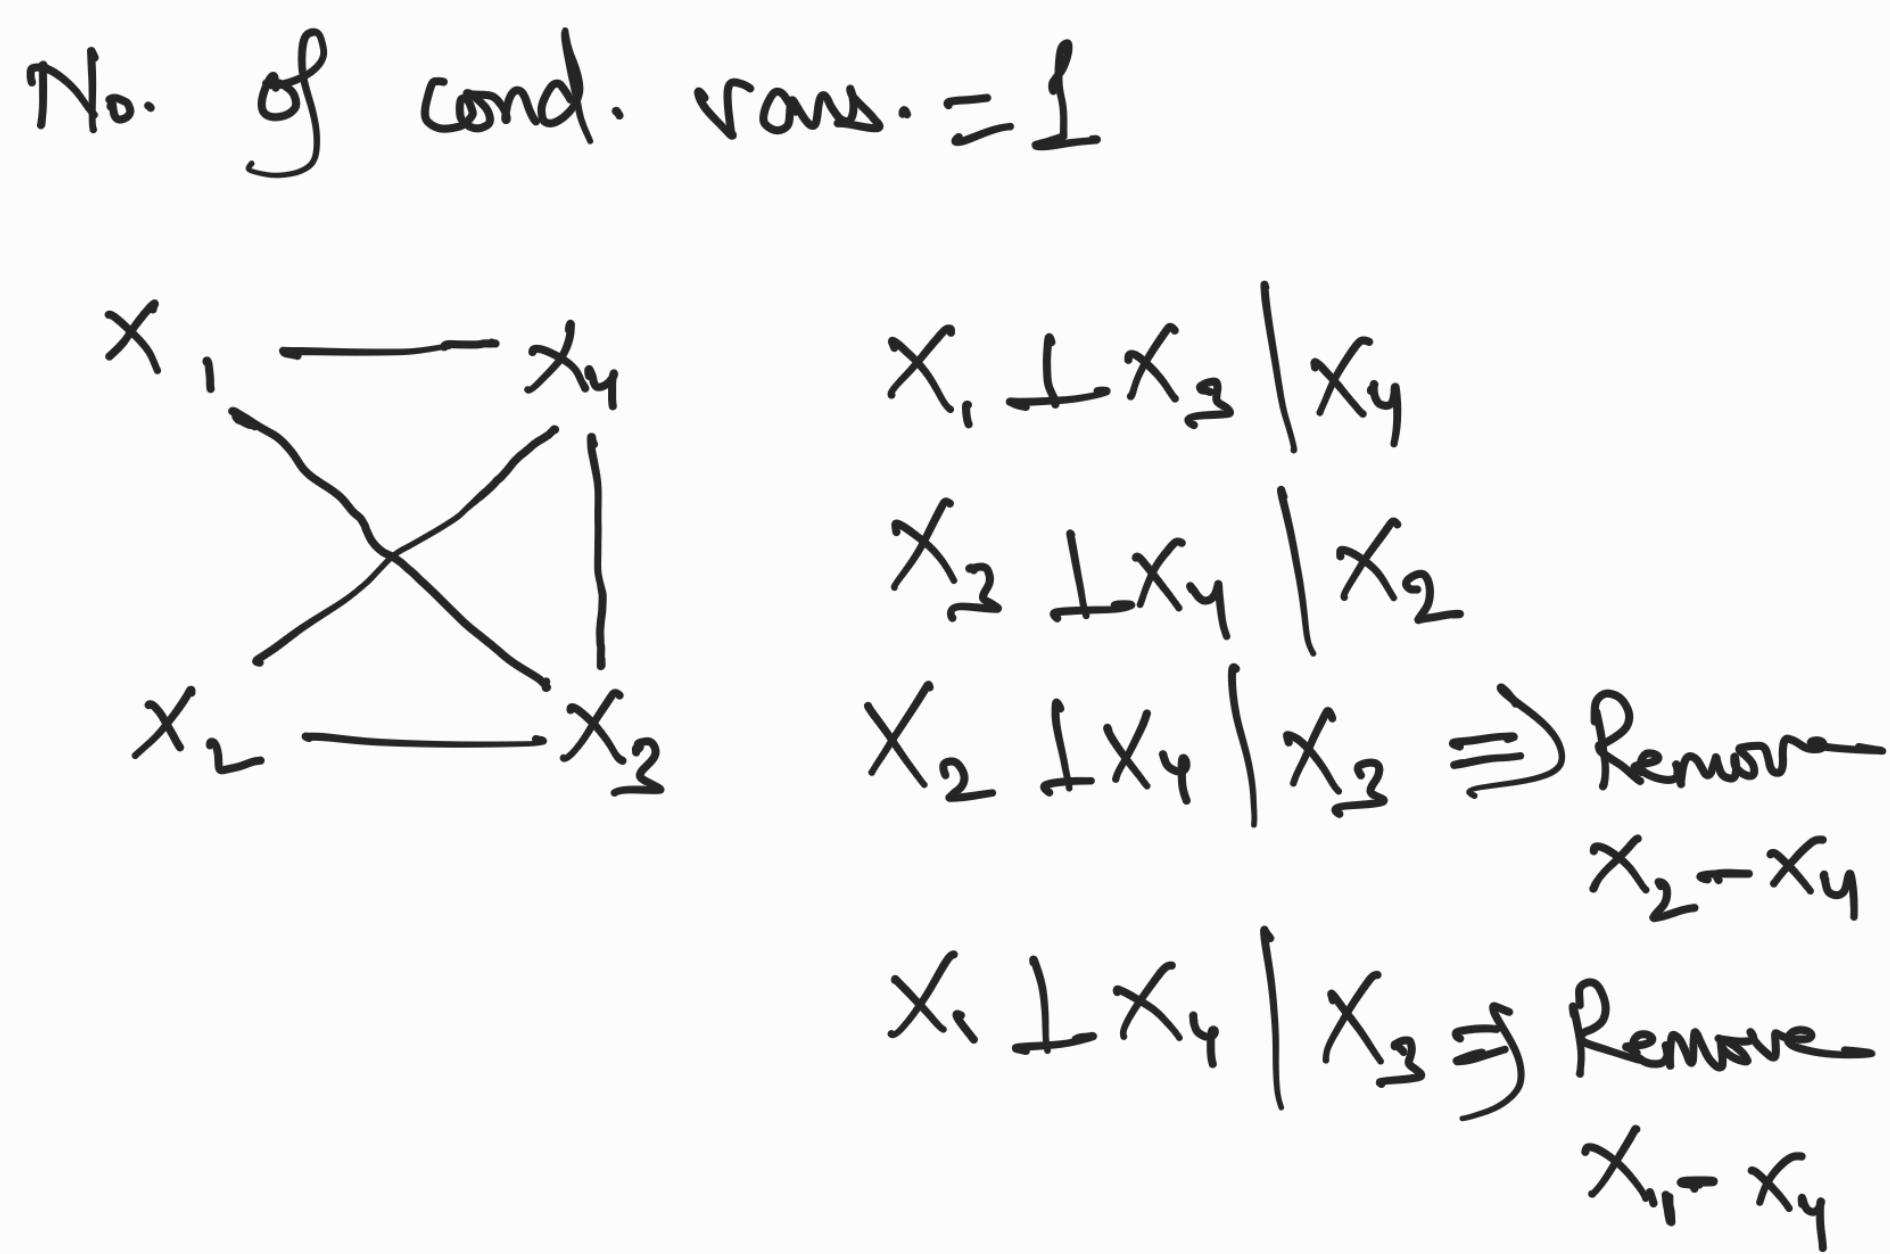 No. of cond. vars. = 1
X1 X4
X2 X3
X1 ⊥ X3 | X4
X3 ⊥ X4 | X2
X2 ⊥ X4 | X3 ⇒ Remove
X2 - X4
X1 ⊥ X4 | X3 ⇒ Remove
X1 - X4